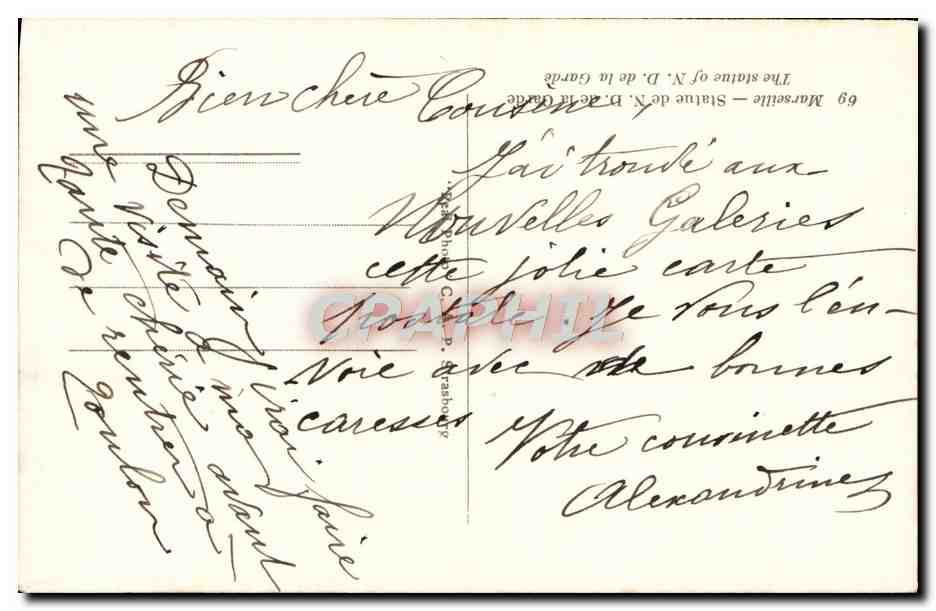 Bien chère Cousine,
J'ai trouvé aux
Nouvelles Galeries
cette jolie carte
postale. Je vous l'en-
voie avec de bonnes
caresses
Votre cousinette
Alexandrine
Demain j'irai faire
une visite à ma
tante chérie avant
de rentrer à
Toulon
69 Marseille — Statue de N. D. de la Garde
The statue of N. D. de la Garde
"Real-Photo" C. P. Strasbourg
CPAPHIL